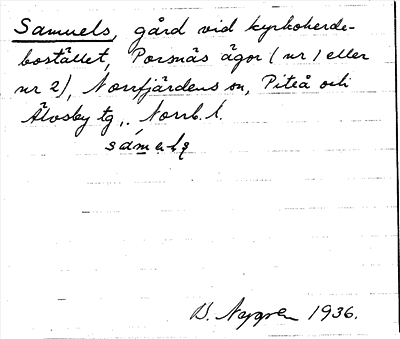 Samuels, gård vid kyrkoherde-
bostället, Porsnäs ägor (nr 1 eller
nr 2), Norrfjärdens sn, Piteå och
Älvsby tg., Norrb. l.
B. Nygren 1936.